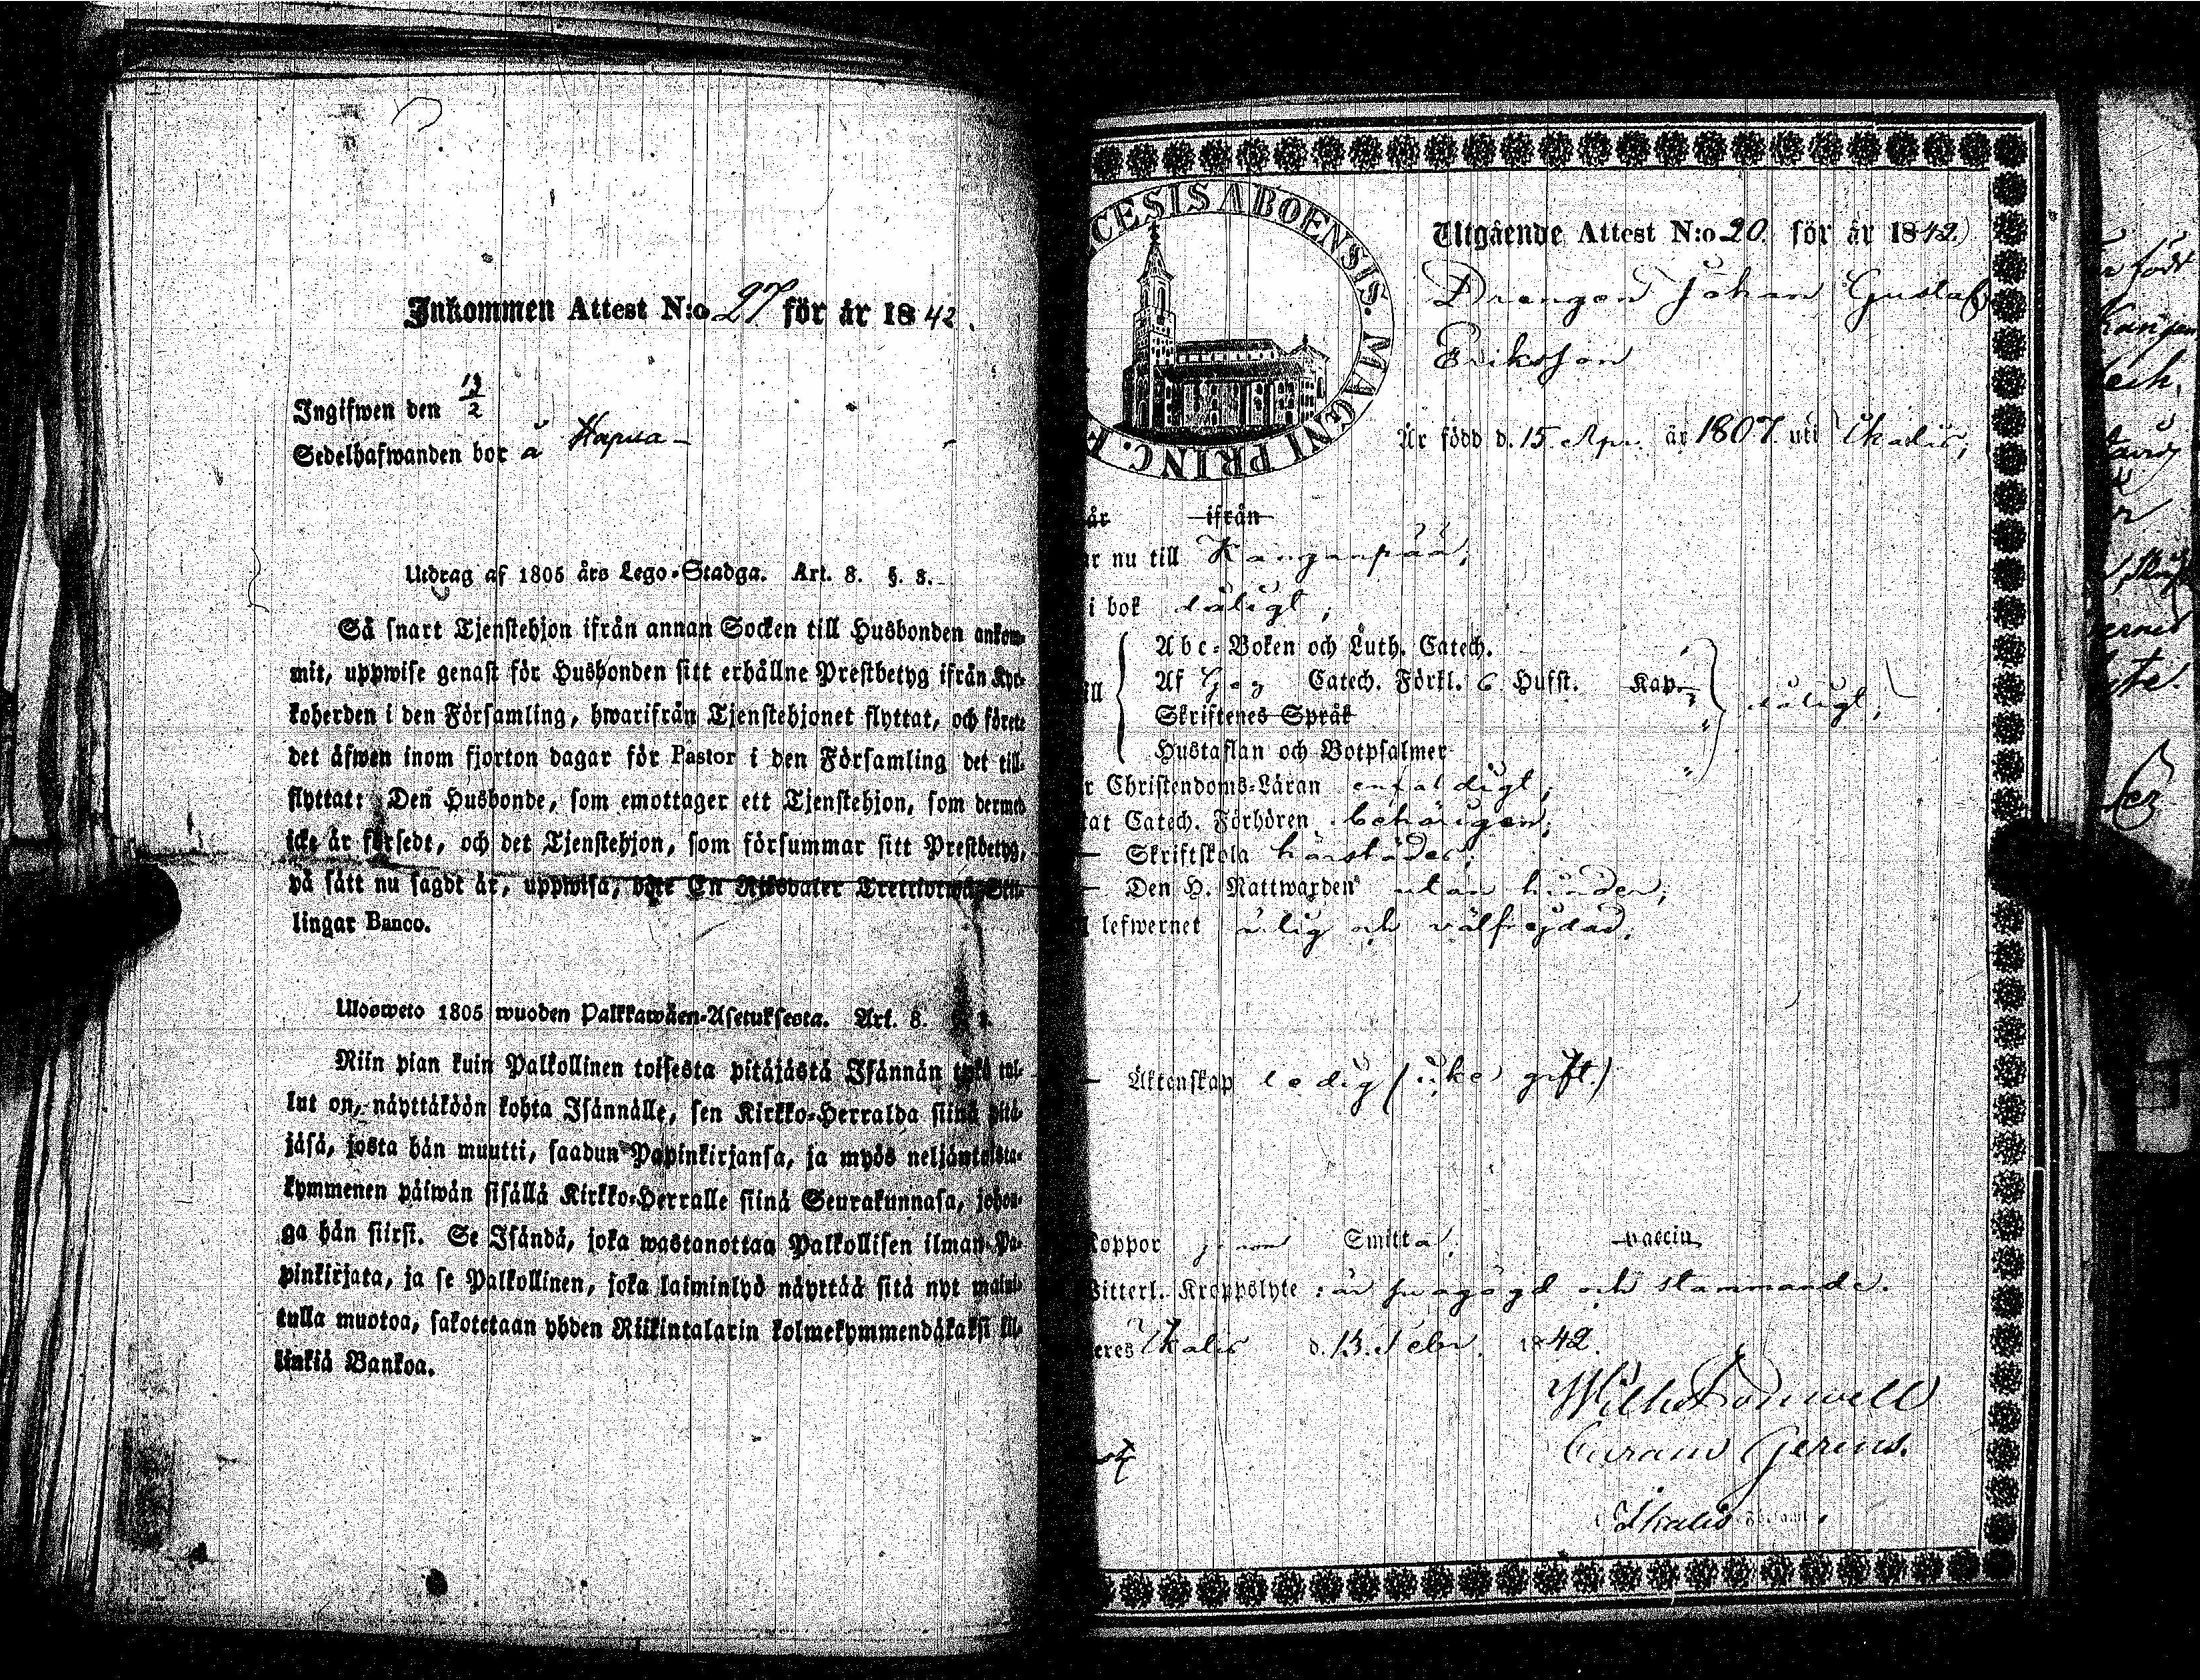 Inkommen Attest N:o 27 för år 1842.
Ingifwen den 19/2
Sedelhafwanden bor å Hapua –
Utdrag af 1805 års Lego-Stadga. Art. 8. §. 3.
Så snart Tjenstehjon ifrån annan Socken till Husbonden ankom-
mit, uppwise genast för Husbonden sitt erhållne Prestbetyg ifrån Kyr-
koherden i den Församling, hwarifrån Tjenstehjonet flyttat, och förete
det äfwen inom fjorton dagar för Pastor i den Församling det till-
flyttat: Den Husbonde, som emottager ett Tjenstehjon, som dermed
icke är försedt, och det Tjenstehjon, som försummar sitt Prestbetyg,
på sätt nu sagdt är, uppwisa, böte En Riksdaler Trettiotwå Skil-
lingar Banco.
Ulosweto 1805 wuoden Palkkawäen-Asetuksesta. Art. 8. § 3.
Niin pian kuin Palkollinen toisesta pitäjästä Isännän tykö tul-
lut on, näyttäköön kohta Isännälle, sen Kirkko-Herralda siinä pitä-
jäsä, josta hän muutti, saadun Papinkirjansa, ja myös neljäntoista-
kymmenen päiwän sisällä Kirkko-Herralle siinä Seurakunnasa, johon-
ga hän siirsi. Se Isändä, joka wastanottaa Palkollisen ilman Pa-
pinkirjata, ja se Palkollinen, joka laiminlyö näyttää sitä nyt mainit-
tulla muotoa, sakotetaan yhden Riikintalarin kolmekymmendäkaksi kil-
linkiä Bankoa.
CESIS ABOENSIS. MAGNI PRINC. F
Utgående Attest N:o 20. för år 1842.
Drengen Johan Gustaf
Eriksson
Är född d. 15 Apr. år 1807 uti Ikalis,
år ifrån
r nu till Kanganpää,
i bok dåligt,
Abc-Boken och Luth. Catech.
ill Af Catech. Förkl. 6 Hufst. Kap. dåligt,
Skriftenes Språk
Hustaflan och Botpsalmer
r Christendoms-Läran enfaldigt,
tat Catech. Förhören behörigen,
– Skriftskola härstädes,
– Den H. Nattwarden utan hinder,
l lefwernet ärlig och välfrejdad.
– Äktenskap ledig (icke gift.)
Koppor Smitta vaccin
Witterl. Kroppslyte: är och stammande.
eres Ikalis d. 13 Febr. 1842.
Wilh.
Curam Gerens.
Ikalis